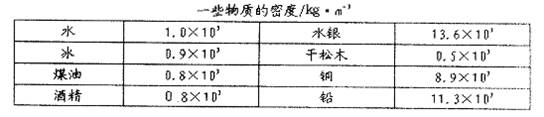 一些物质的密度/kg·m⁻³
水 1.0×10³ 水银 13.6×10³
冰 0.9×10³ 干松木 0.5×10³
煤油 0.8×10³ 铜 8.9×10³
酒精 0.8×10³ 铅 11.3×10³